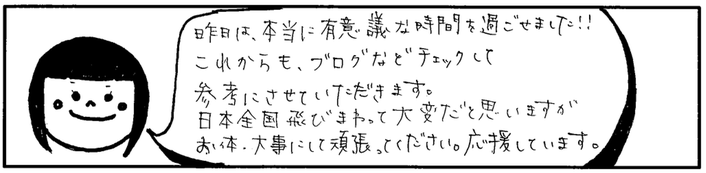 昨日は、本当に有意議な時間を過ごせました!!
これからも、ブログなどチェックして
参考にさせていただきます。
日本全国飛びまわって大変だと思いますが
お体・大事にして頑張ってください。応援しています。